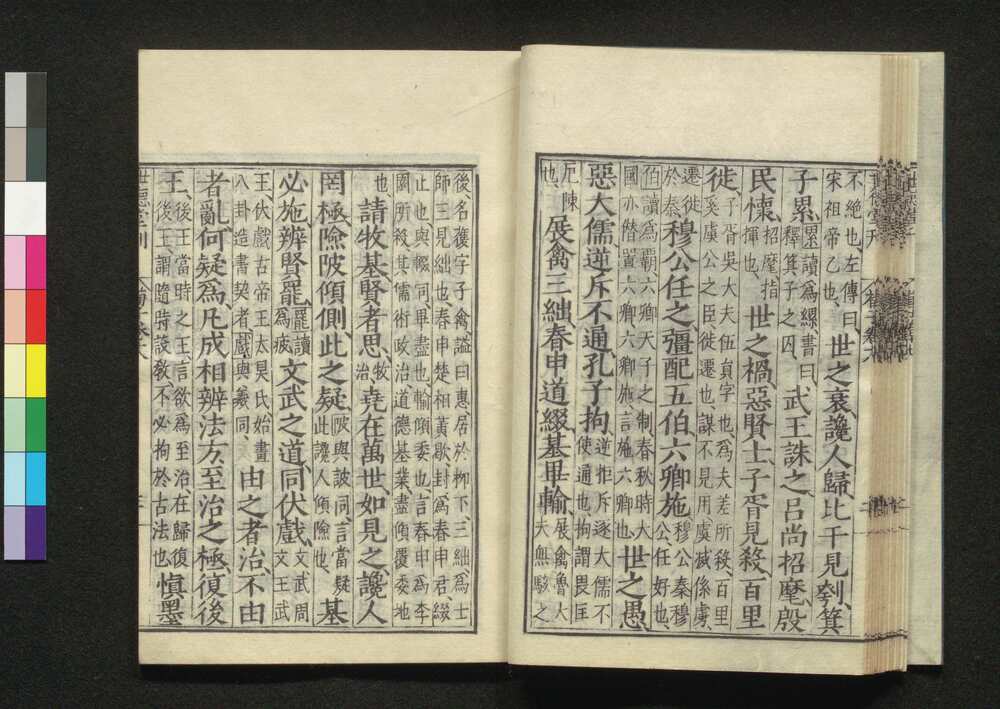 不絶也左傳曰宋祖帝乙也世之衰讒人歸比干見刳箕
子累累讀爲縲書曰釋箕子之囚武王誅之呂尚招麾殷
民懷招麾指揮也世之禍惡賢士子胥見殺百里
徙子胥吳大夫伍員字也爲夫差所殺百里奚虞公之臣徙遷也謀不見用虞滅係虜
遷徙於秦穆公任之彊配五伯六卿施穆公秦穆公任好也
伯讀爲霸六卿天子之制春秋時大國亦僭置六卿六卿施言施六卿也世之愚
惡大儒逆斥不通孔子拘逆拒斥逐大儒不使通也拘謂畏匡
厄陳也展禽三絀春申道綴基畢輸展禽魯大夫無駭之
後名獲字子禽謚曰惠居於柳下三絀爲士師三見絀也春申楚相黃歇封爲春申君綴
止也與輟同畢盡也輸傾委也言春申爲李園所殺其儒術政治道德基業盡傾覆委地
也請牧基賢者思牧治堯在萬世如見之讒人
罔極險陂傾側此之疑陂與詖同言當疑此讒人傾險也基
必施辨賢罷罷讀爲疲文武之道同伏戲文武周文王武
王伏戲古帝王太昊氏始畫八卦造書契者戲與羲同由之者治不由
者亂何疑爲凡成相辨法方至治之極復後
王後王當時之王言欲爲至治在歸復後王謂隨時設教不必拘於古法也慎墨
世德堂刊